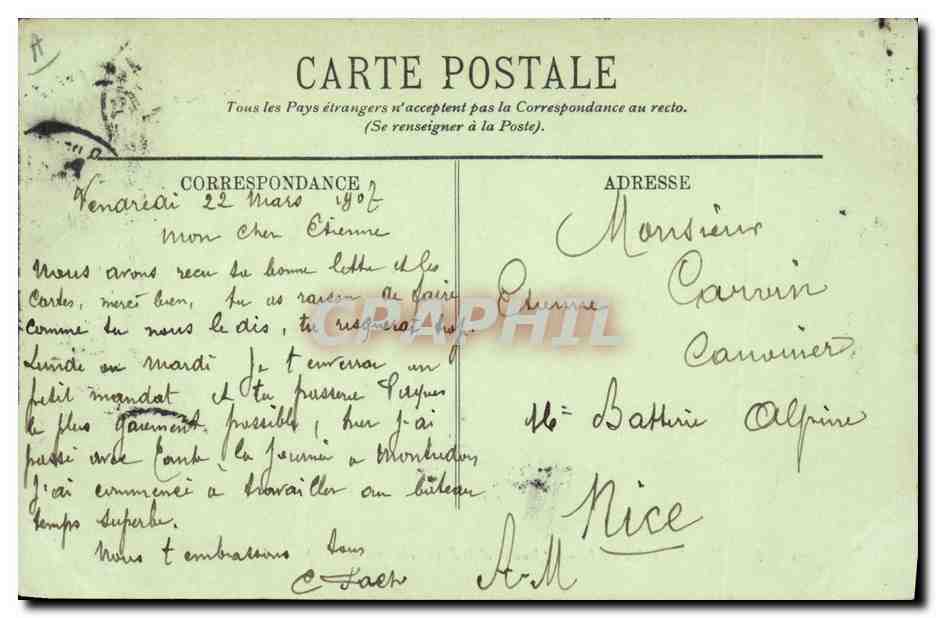 A
CARTE POSTALE
Tous les Pays étrangers n'acceptent pas la Correspondance au recto.
(Se renseigner à la Poste).
CORRESPONDANCE
Vendredi 22 Mars 1907
Mon cher Etienne
Nous avons reçu ta bonne lettre et les
Cartes, merci bien, tu as raison de faire
comme tu nous le dis, tu risquerai trop.
Lundi ou mardi je t'enverrai un
petit mandat et tu passeras Pâques
le plus gaiement possible, hier j'ai
passé avec la journée a
J'ai commencé a travailler au bateau
temps superbe.
Nous t'embrassons tous
ADRESSE
Monsieur
Etienne Carvin
Canonnier
Batterie Alpine
Nice
A-M
CPAPHIL